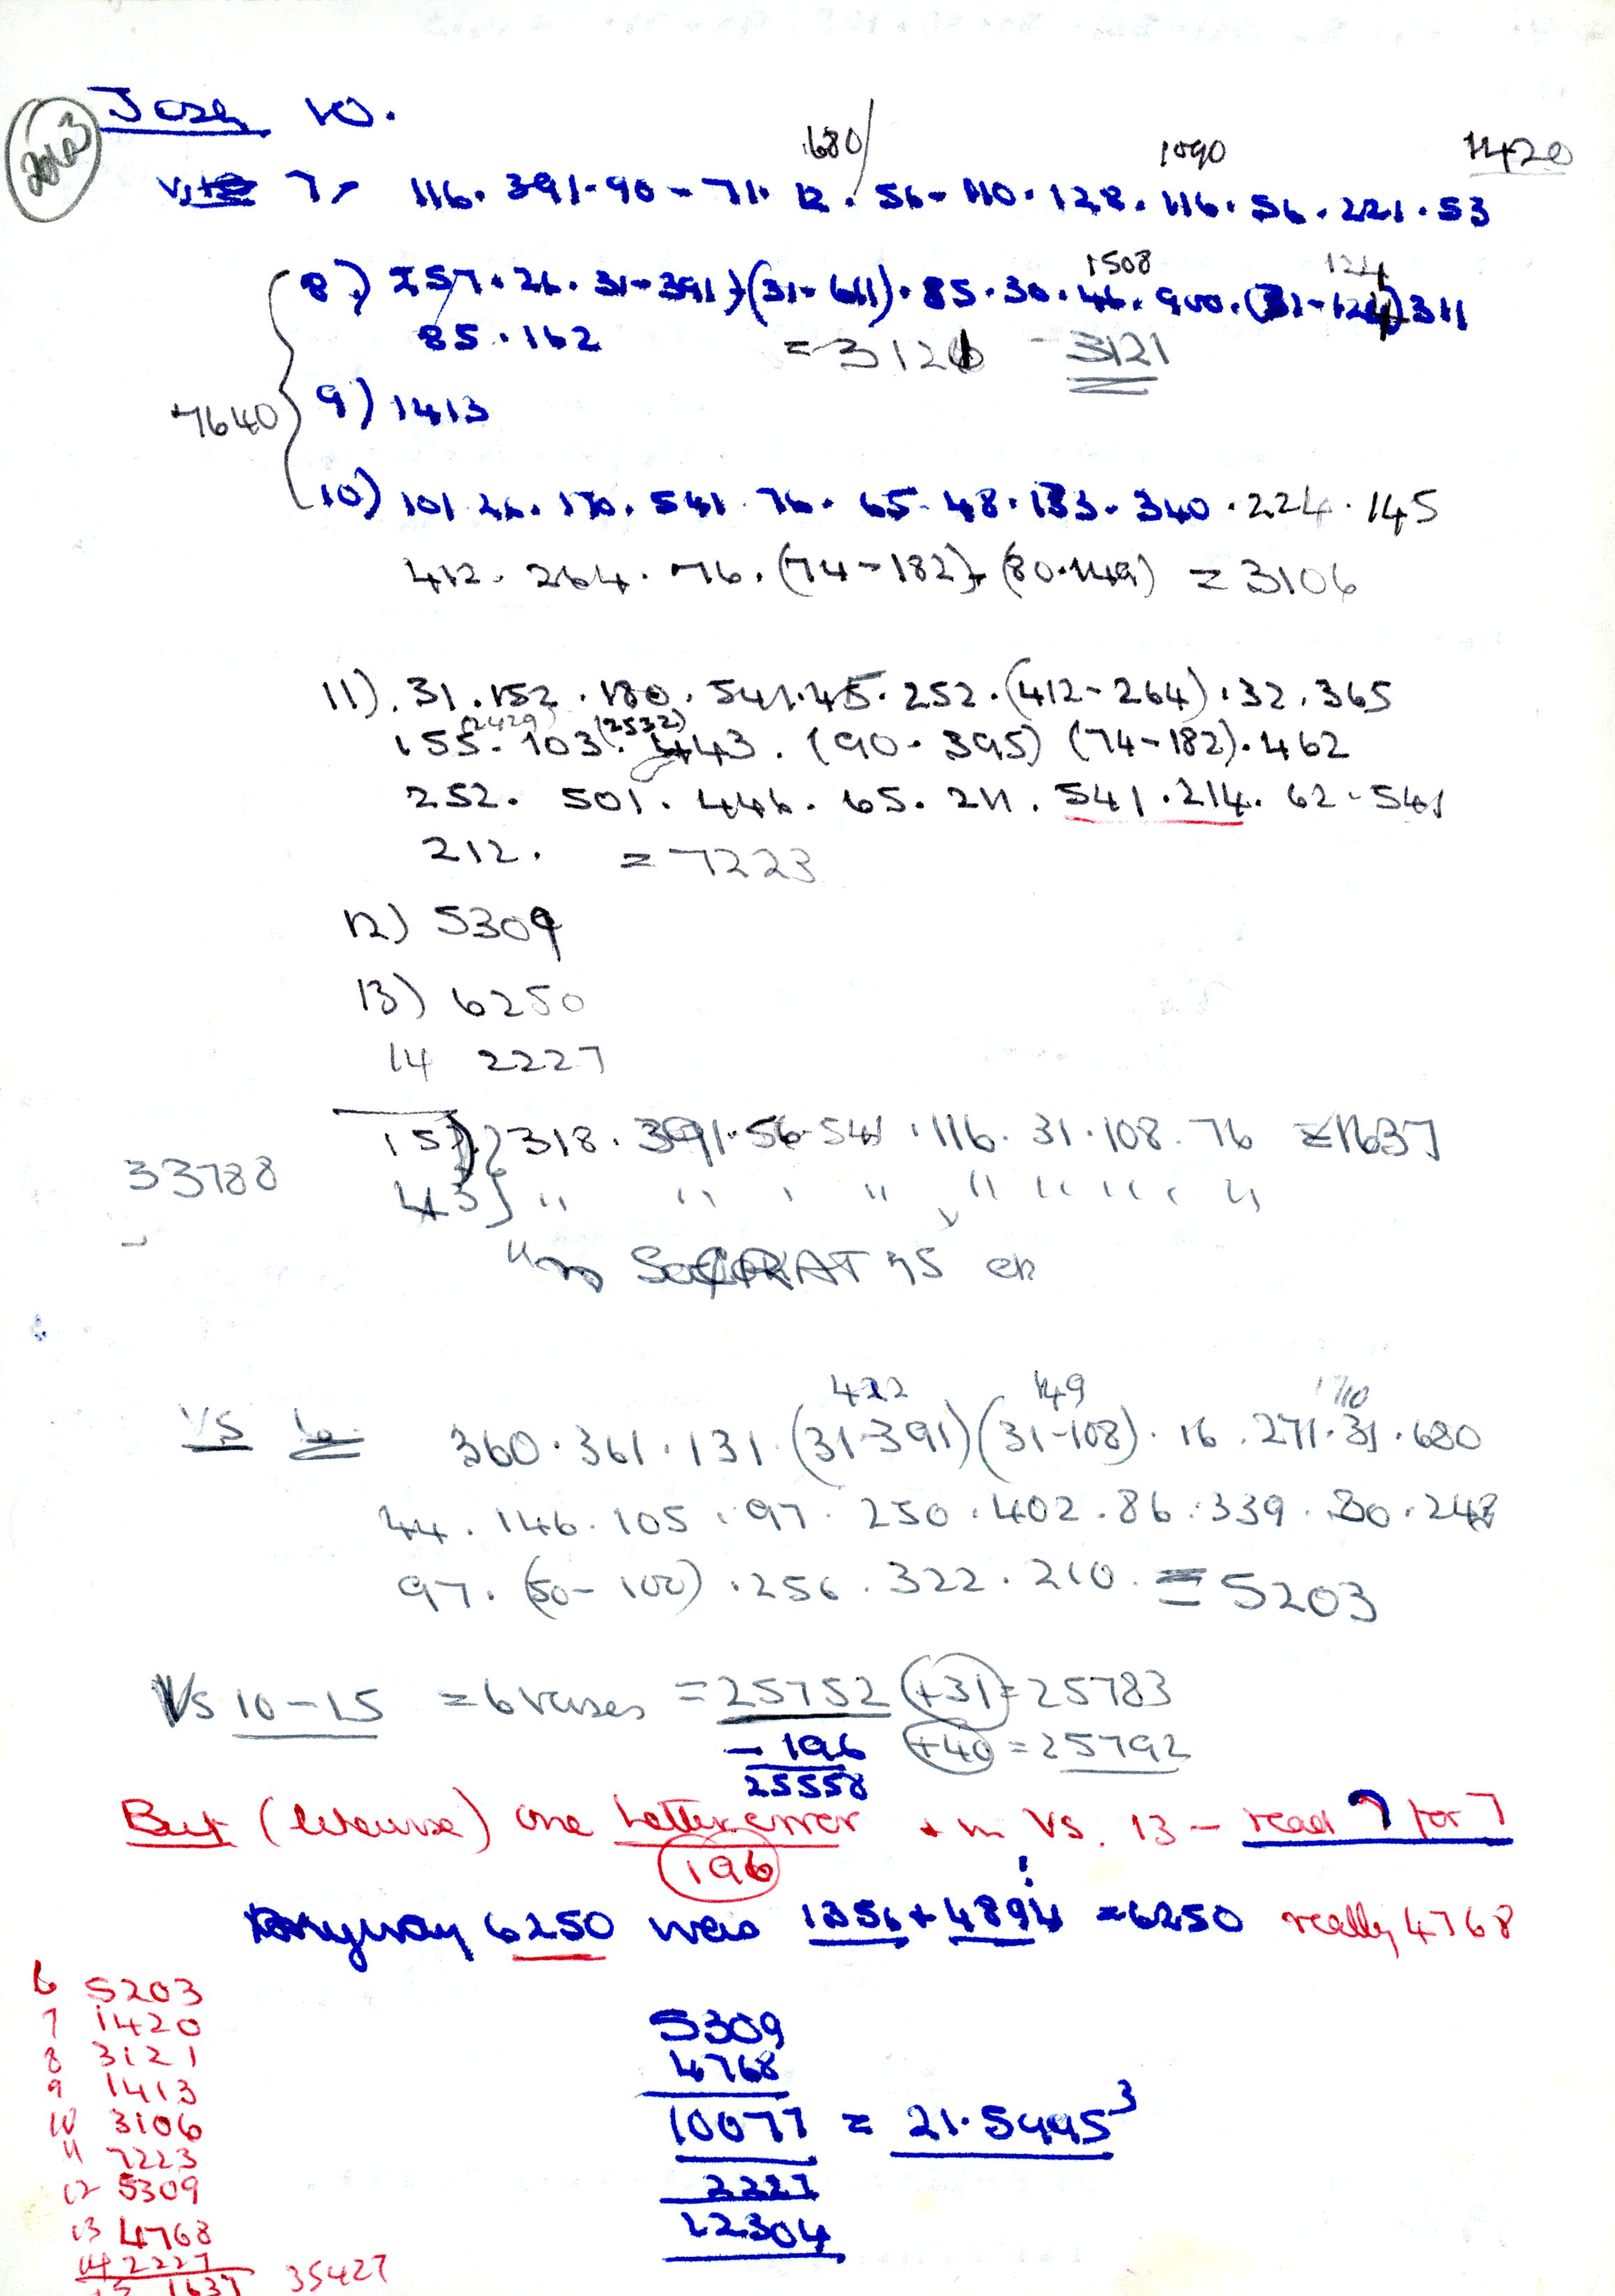 Josh 10.
2063
680 1090 1420
7, 116. 391. 90 - 71. 12. 56 - 110. 128. 116. 56. 221. 53
1508 124
8) 257. 26. 31-391)(31-611). 85. 30. 46. 900. (31-124) 311
85. 162 = 3121 - 3121
7640
9) 1413
10) 101 26. 170. 541. 76. 65. 48. 133. 340. 224. 145
412. 264. 76. (74-182) (80.149) = 3106
11). 31. 152. 180. 541. 45. 252. (412-264). 32. 365
(2429) (2532)
155. 103. 443. (90. 395) (74-182). 462
252. 501. 446. 65. 211. 541. 214. 62 - 541
212. = 7223
12) 5309
13) 6250
14 2227
15) 318. 391. 56. 541. 116. 31. 108. 76 = 1637
33788
43) " " " " " " " " "
422 149 1710
VS 6 360. 361. 131. (31-391)(31-108). 16. 271. 31. 680
44. 146. 105. 97. 250. 402. 86. 339. 80. 248
97. (50-100). 256. 322. 210. = 5203
Vs 10-15 = 6 verses = 25752 (+31) = 25783
- 196 (+40) = 25792
25558
But (likewise) one letter error + in Vs. 13 - read ך for 7
196
Anyway 6250 was 1356 + 4894! = 6250 really 4768
6 5203
7 1420
8 3121
9 1413
10 3106
11 7223
12 5309
13 4768
14 2227
15 1637 35427
5309
4768
10077 = 21.5995³
2227
12304